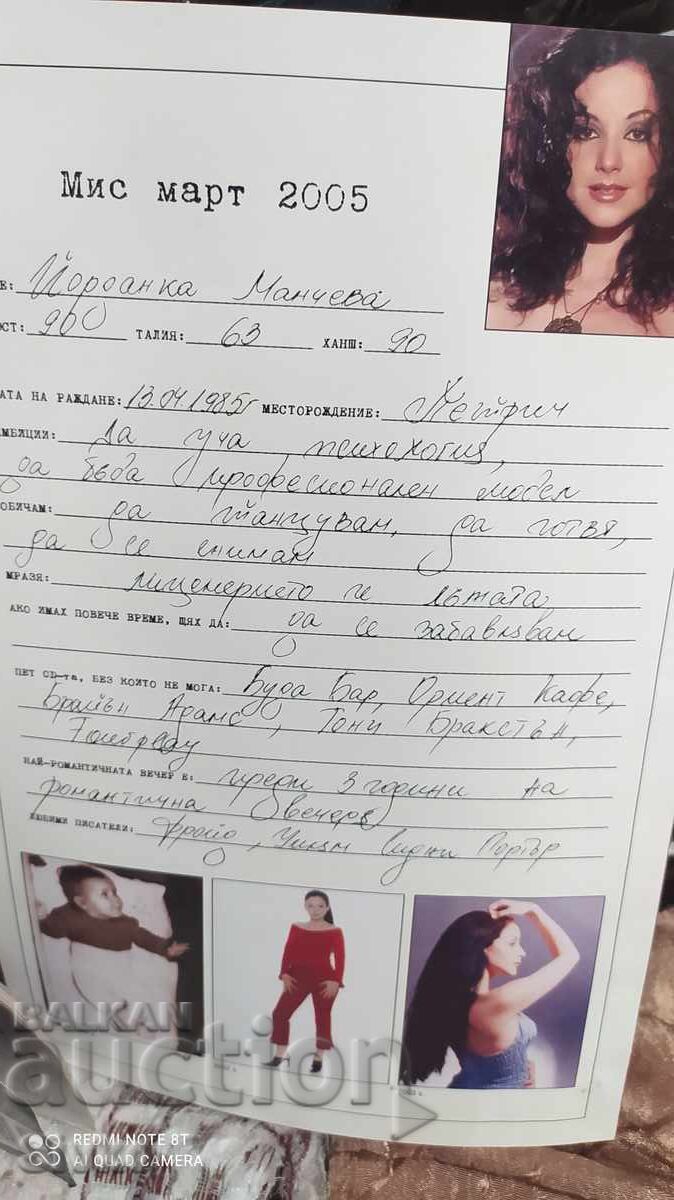 Мис март 2005
Е: Йорданка Манчева
СТ: 90 ТАЛИЯ: 63 ХАНШ: 90
АТА НА РАЖДАНЕ: 13.04.1985г МЕСТОРОЖДЕНИЕ: Петрич
МБИЦИИ: Да уча психология,
да бъда професионален модел
ОБИЧАМ: да танцувам, да готвя,
да се снимам
МРАЗЯ: лицемерието и лъжата
АКО ИМАХ ПОВЕЧЕ ВРЕМЕ, ЩЯХ ДА: да се забавлявам
ПЕТ ОБ-та, БЕЗ КОИТО НЕ МОГА: Буда Бар, Ориент Кафе,
Брайън Адамс, Тони Бракстън,
НАЙ-РОМАНТИЧНАТА ВЕЧЕР Е: преди 3 години на
романтична вечеря
ЛЮБИМИ ПИСАТЕЛИ: Фройд, Сидни
BALKAN
auction
REDMI NOTE 8T
AI QUAD CAMERA